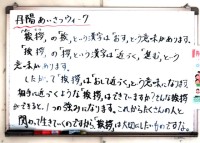 丹陽あいさつウィーク
"挨拶"の"挨"という漢字は"おす"という意味があります。
"挨拶"の"拶"という漢字は"近づく"、"進む"という
意味があります。
したがって"挨拶"は"おして近づく"という意味になります。
相手に近づくような"挨拶"はできていますか?そんな挨拶
ができると、1つの強みになります。これからたくさんの人と
関わって生きていくのですから、"挨拶"は大切にしたいものですね。